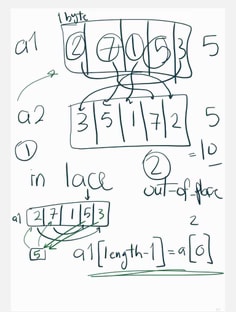 1 byte
a1 2 7 1 5 3 5
a2 3 5 1 7 2 5
1 2 = 10
in lace out-of-place
a1 2 7 1 5 3
5
2
a1[length-1] = a[0]